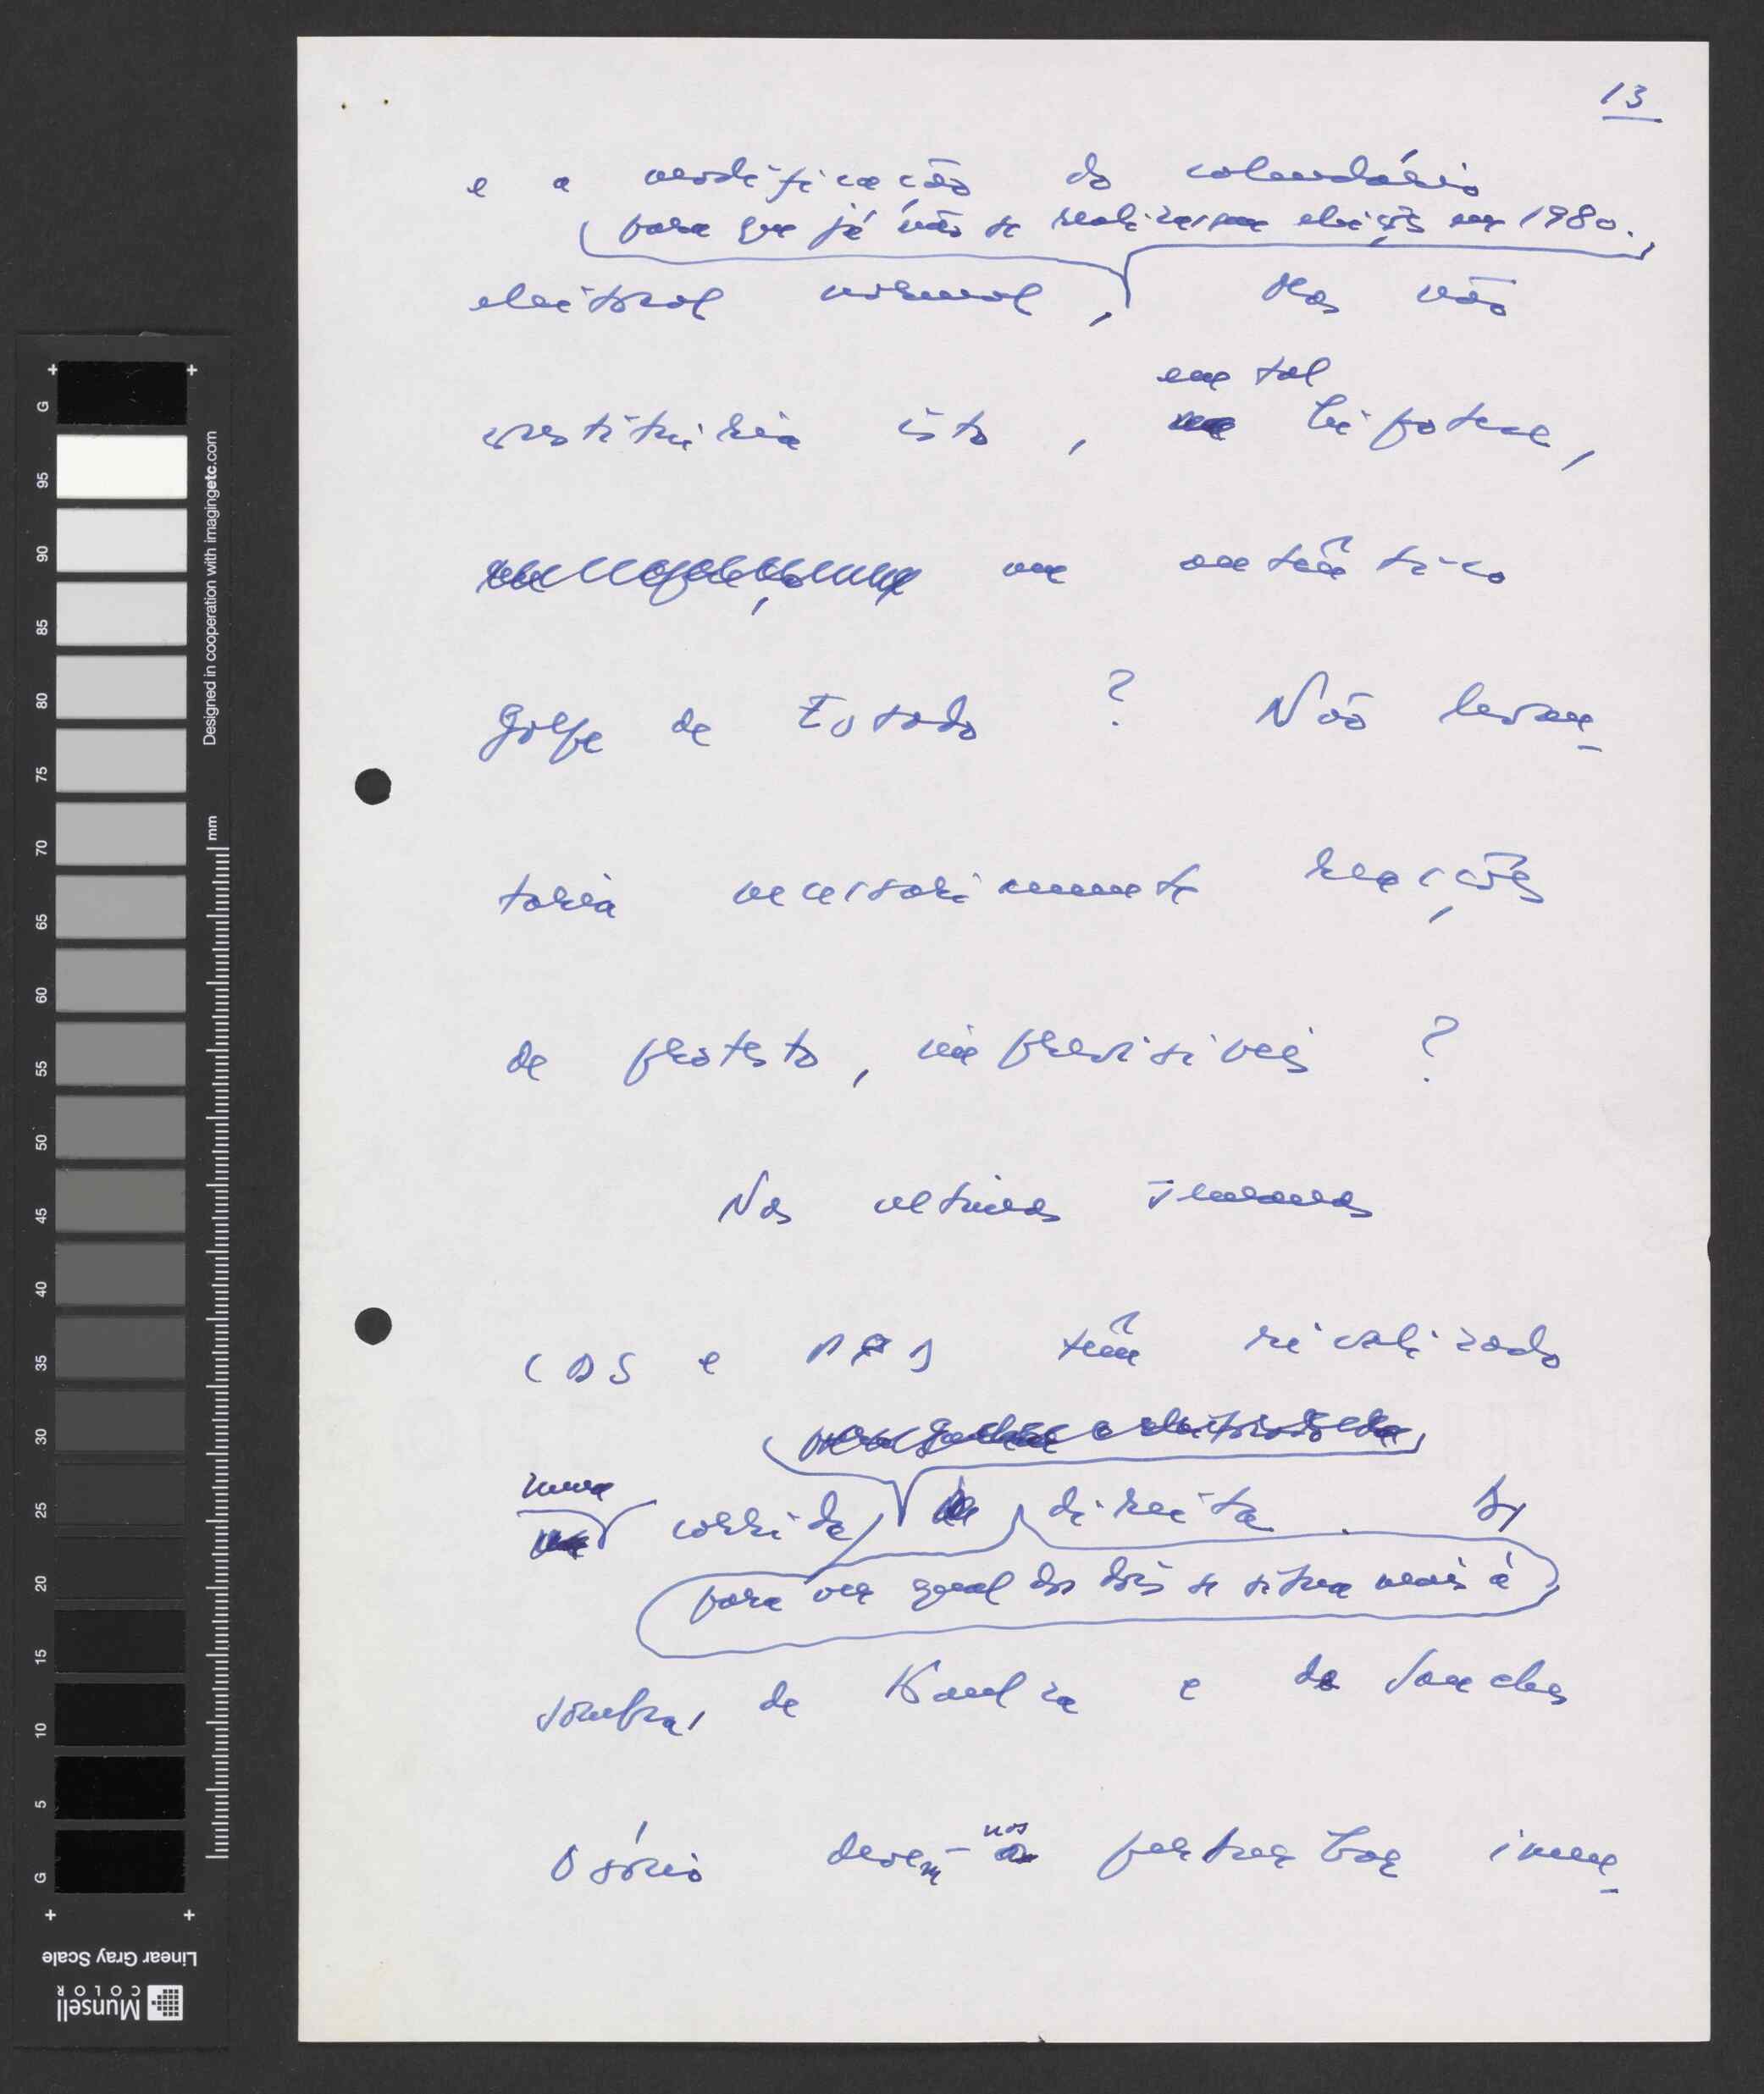 13
e a modificação do calendário
para que já não se realizassem eleições em 1980.
eleitoral normal, Mas não
em tal
constituiria isto, hipótese,
um autêntico
golpe de Estado ? Não levan-
taria necessariamente reacções
de protesto, imprevisíveis ?
Nas últimas semanas
CDS e PSD têm rivalizado
numa
corrida direita. As
para ver qual dos dois se situa mais à
sombras de Kaulza e de Sanches
Osório devem-nos perturbar imen-
G 95 90 85 80 75 70 65 60 55 50 45 40 35 30 25 20 15 10 5 G
mm
Designed in cooperation with imagingetc.com
Linear Gray Scale
Munsell
COLOR